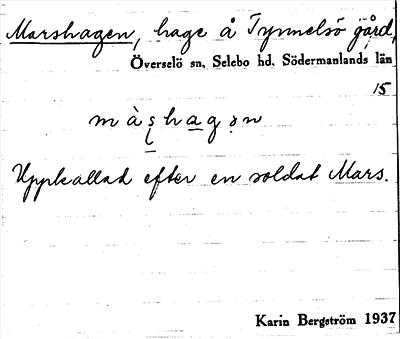 Marshagen, hage å Tynnelsö gård,
Överselö sn, Selebo hd, Södermanlands län
15
màʂhagən
Uppkallad efter en soldat Mars.
Karin Bergström 1937